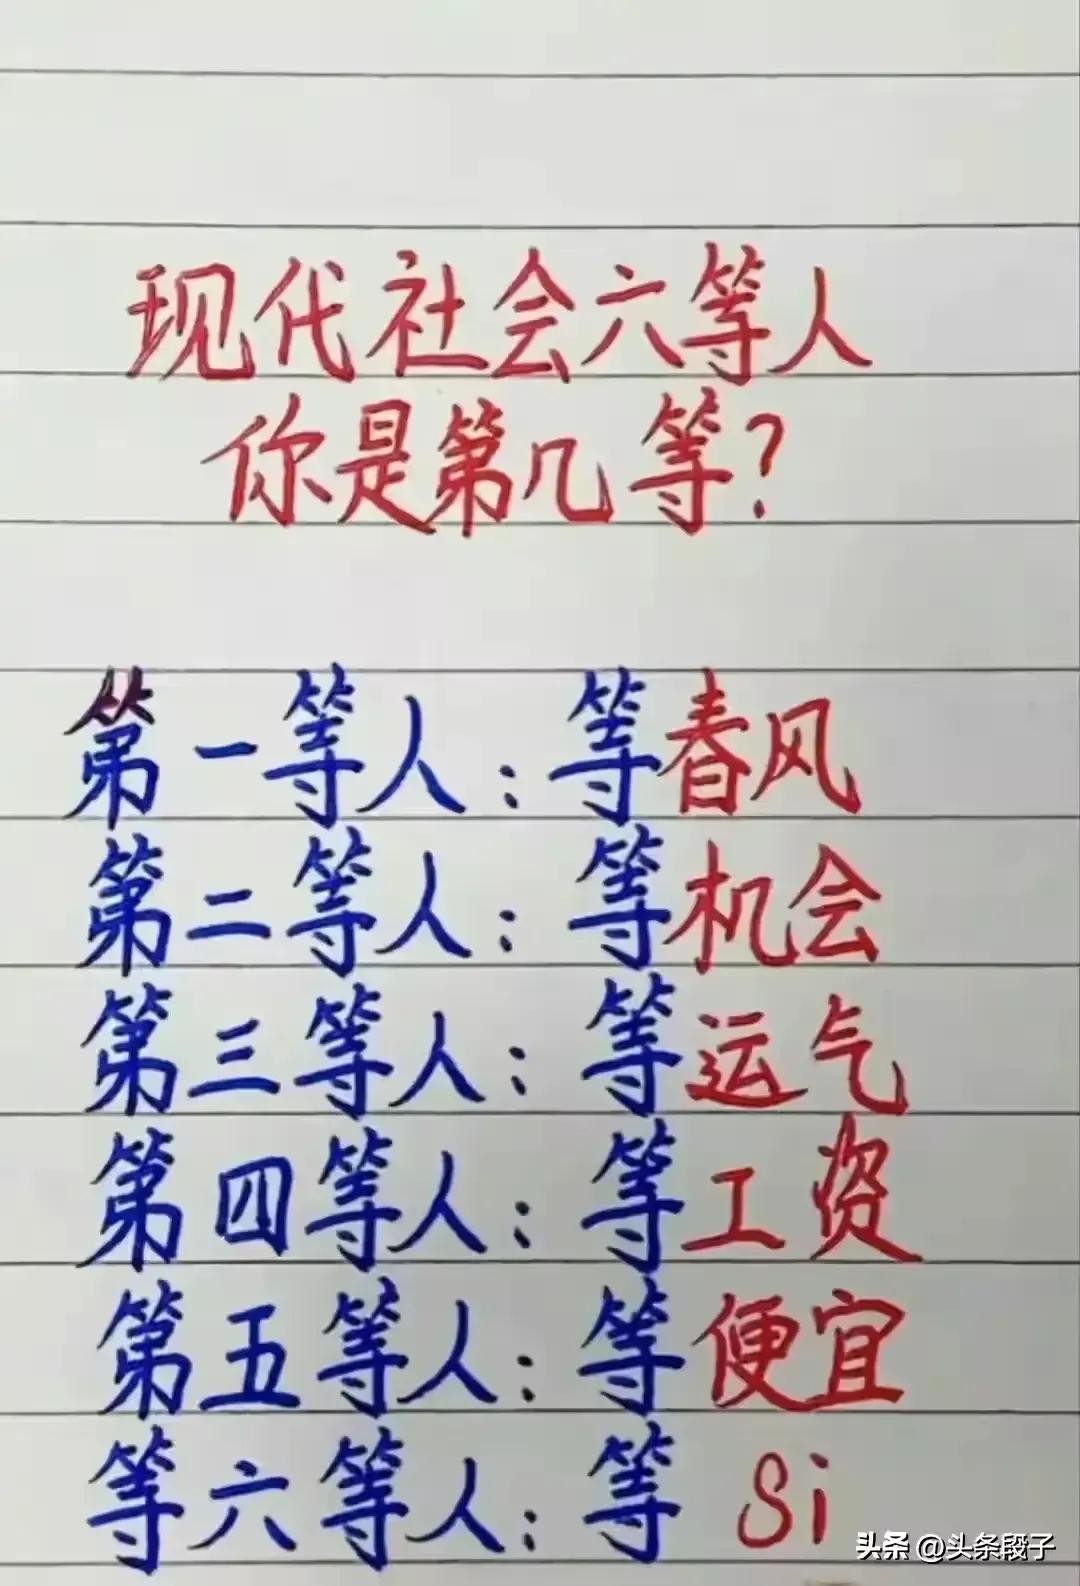 现代社会六等人
你是第几等?
第一等人:等春风
第二等人:等机会
第三等人:等运气
第四等人:等工资
第五等人:等便宜
等六等人:等 Si
头条 @头条段子